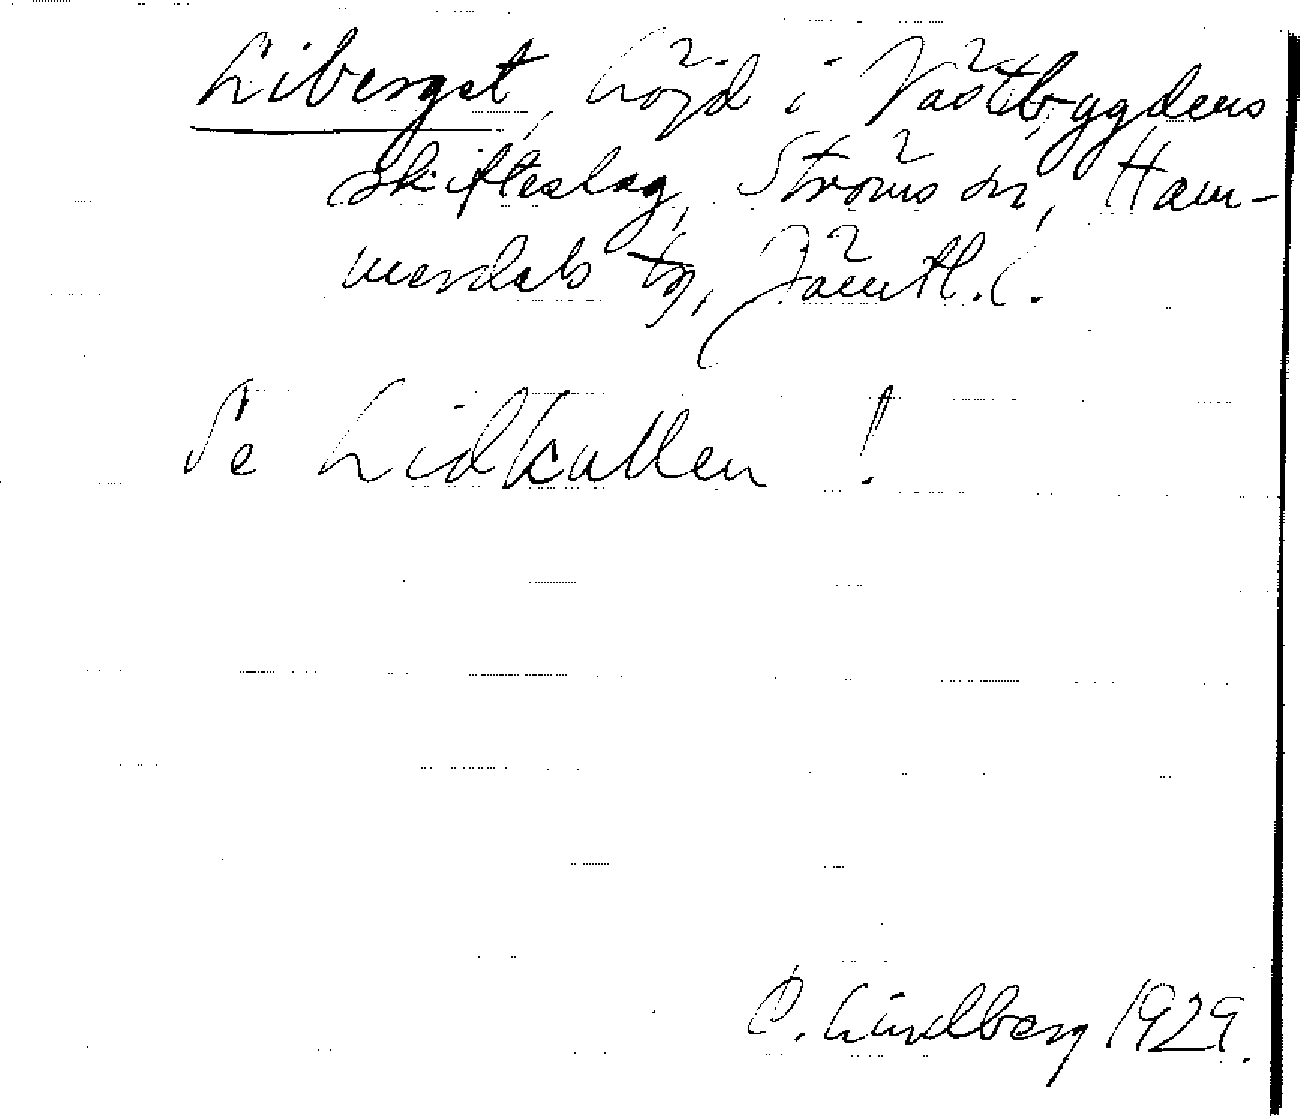 Liberget, höjd i Västbygdens
skifteslag, Ströms sn, Ham-
merdals tg, Jämtl. l.
Se Lidkallen!
C. Lindberg 1929.